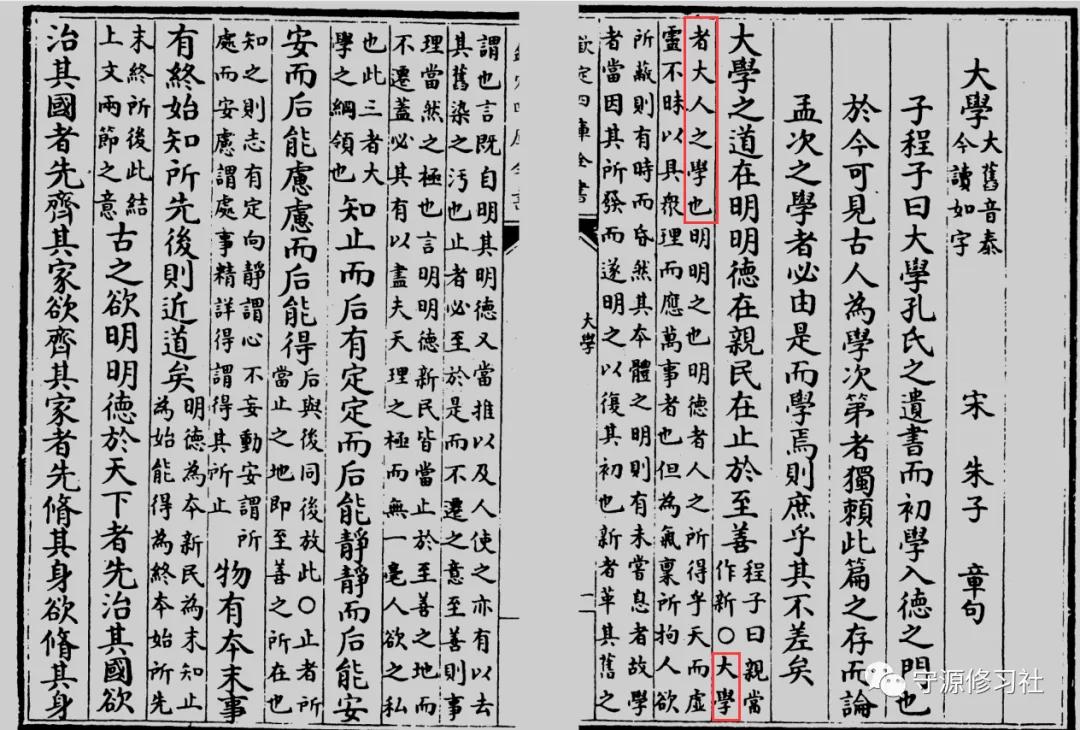 大學
大舊音泰
今讀如字
宋 朱子 章句
子程子曰大學孔氏之遺書而初學入德之門也
於今可見古人為學次第者獨賴此篇之存而論
孟次之學者必由是而學焉則庶乎其不差矣
大學之道在明明德在親民在止於至善
程子曰親當
作新○大學
者大人之學也明明之也明德者人之所得乎天而虛
靈不昧以具衆理而應萬事者也但為氣稟所拘人欲
所蔽則有時而昏然其本體之明則有未嘗息者故學
者當因其所發而遂明之以復其初也新者革其舊之
欽定四庫全書
大學
謂也言既自明其明德又當推以及人使之亦有以去
其舊染之汚也止者必至於是而不遷之意至善則事
理當然之極也言明明德新民皆當止於至善之地而
不遷蓋必其有以盡夫天理之極而無一毫人欲之私
也此三者大
學之綱領也
知止而后有定定而后能靜靜而后能安
安而后能慮慮而后能得
后與後同後放此○止者所
當止之地即至善之所在也
知之則志有定向靜謂心不妄動安謂所
處而安慮謂處事精詳得謂得其所止
物有本末事
有終始知所先後則近道矣
明德為本新民為末知止
為始能得為終本始所先
末終所後此結
上文兩節之意
古之欲明明德於天下者先治其國欲
治其國者先齊其家欲齊其家者先脩其身欲脩其身
宁源修习社